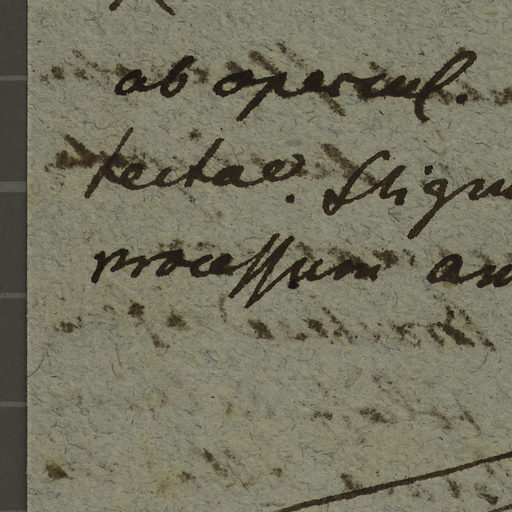 ab opercul.
tectae. Stigm
processum an